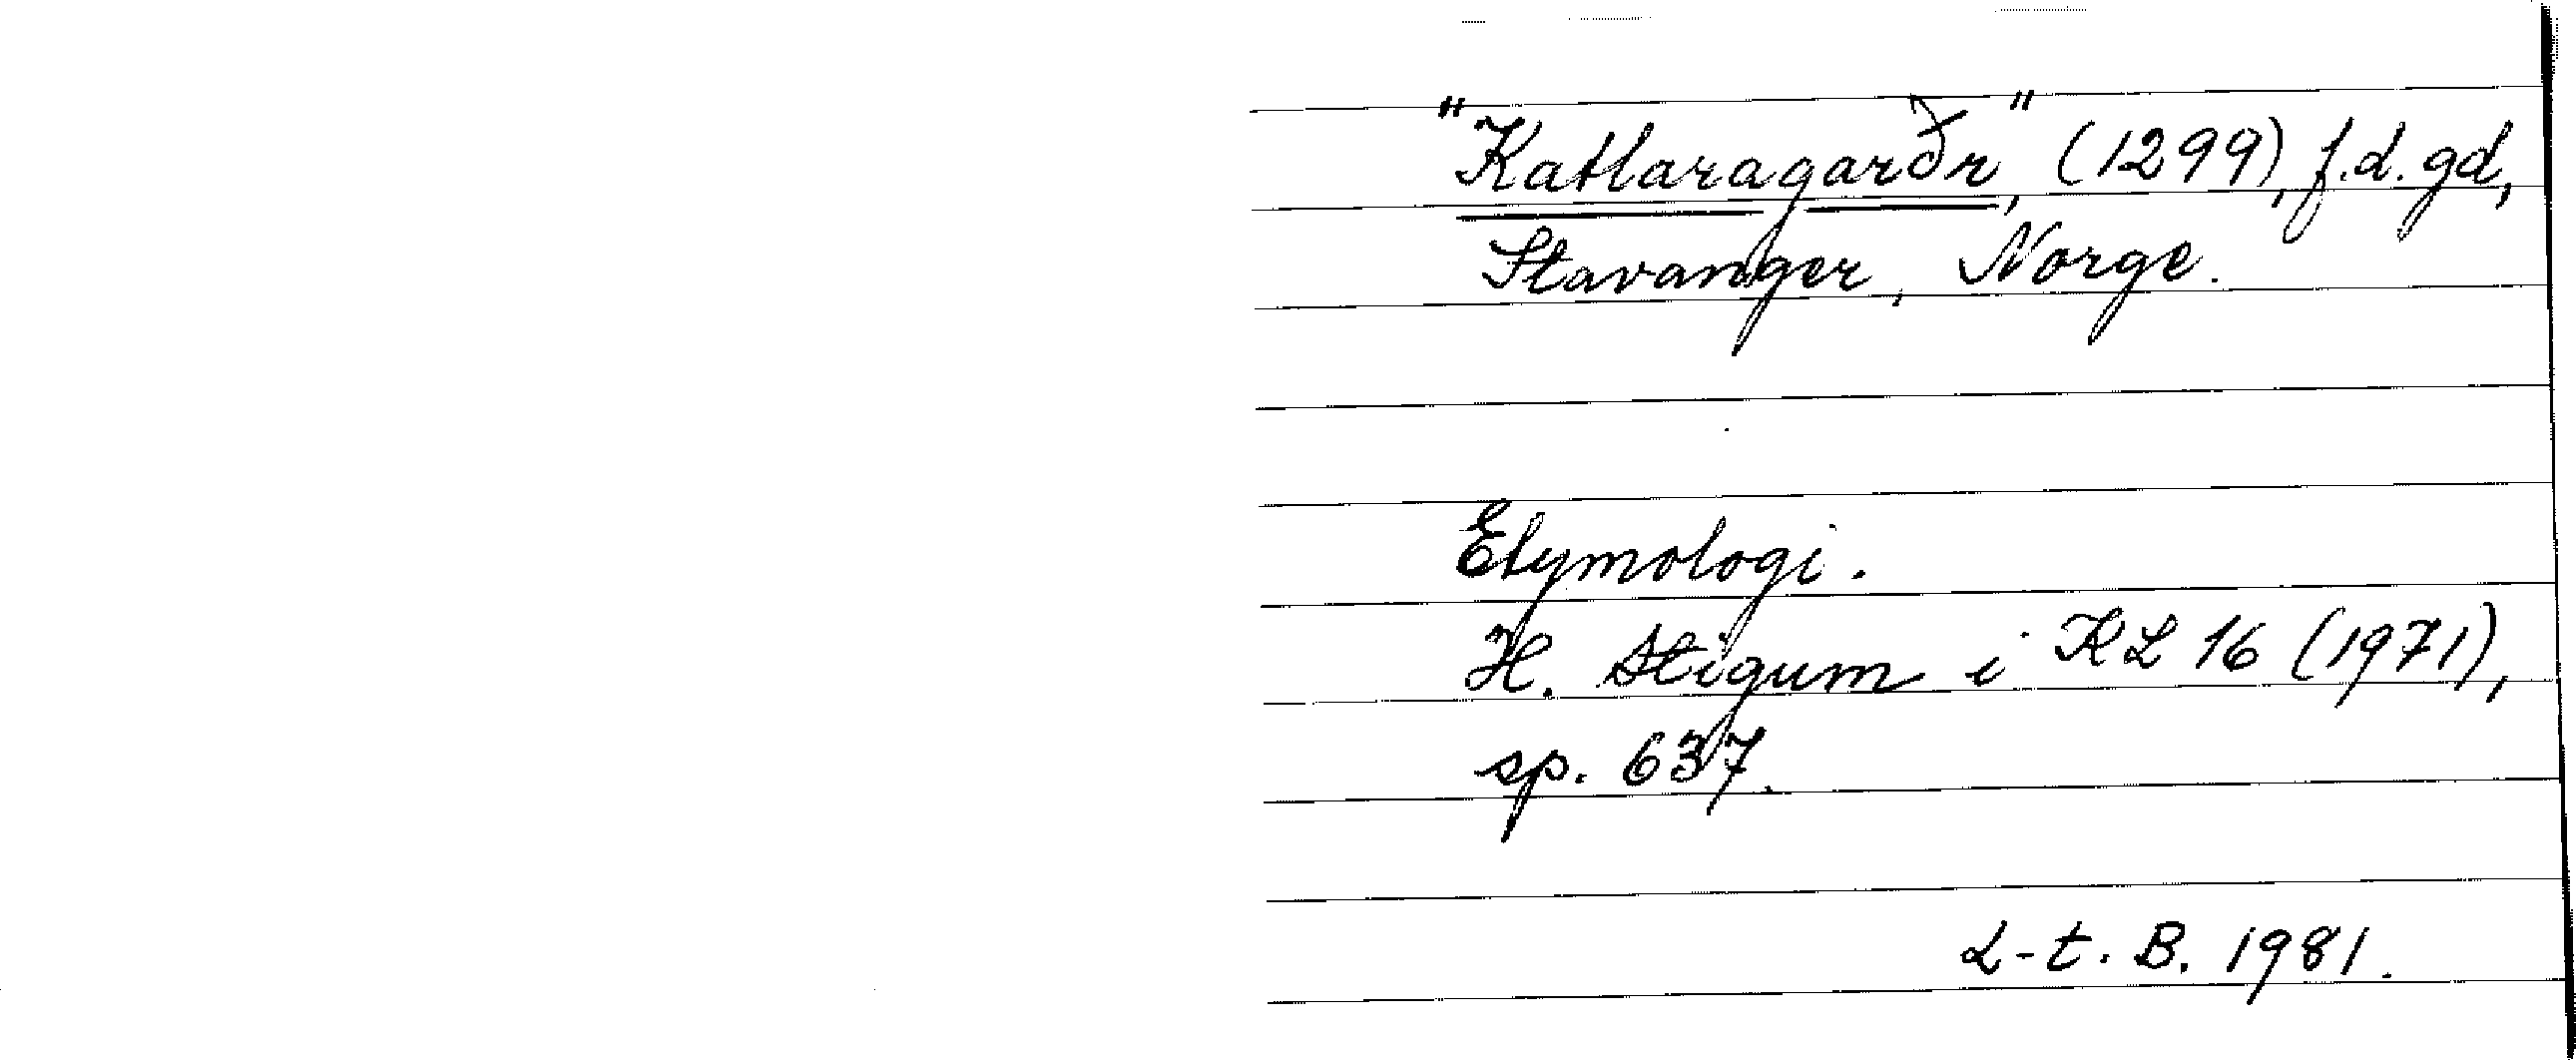 "Katlaragarðr", (1299), f.d. gd,
Stavanger, Norge.
Etymologi.
H. Stigum i KL 16 (1971),
sp. 637.
L-t. B. 1981.